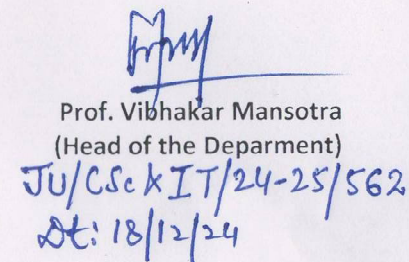 Prof. Vibhakar Mansotra
(Head of the Deparment)
JU/CSc & IT/24-25/562
Dt: 18/12/24